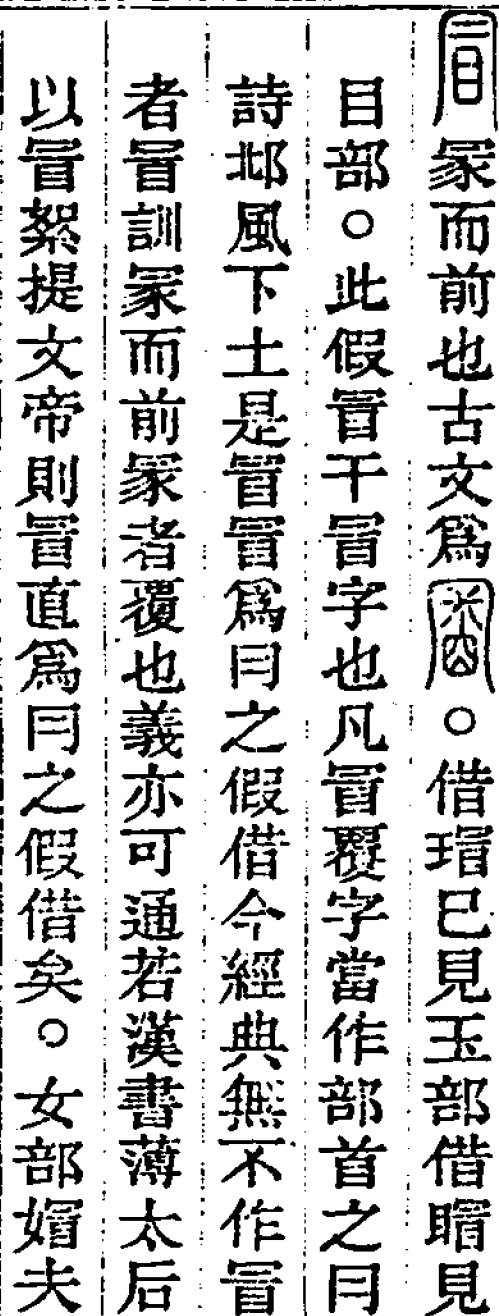 冒冡而前也古文爲𡇒。借瑁已見玉部借瞐見
目部。此假冒干冒字也凡冒覆字當作部首之冃
詩邶風下土是冒冒爲冃之假借今經典無不作冒
者冒訓冡而前冡者覆也義亦可通若漢書薄太后
以冒絮提文帝則冒直爲冃之假借矣。女部媢夫